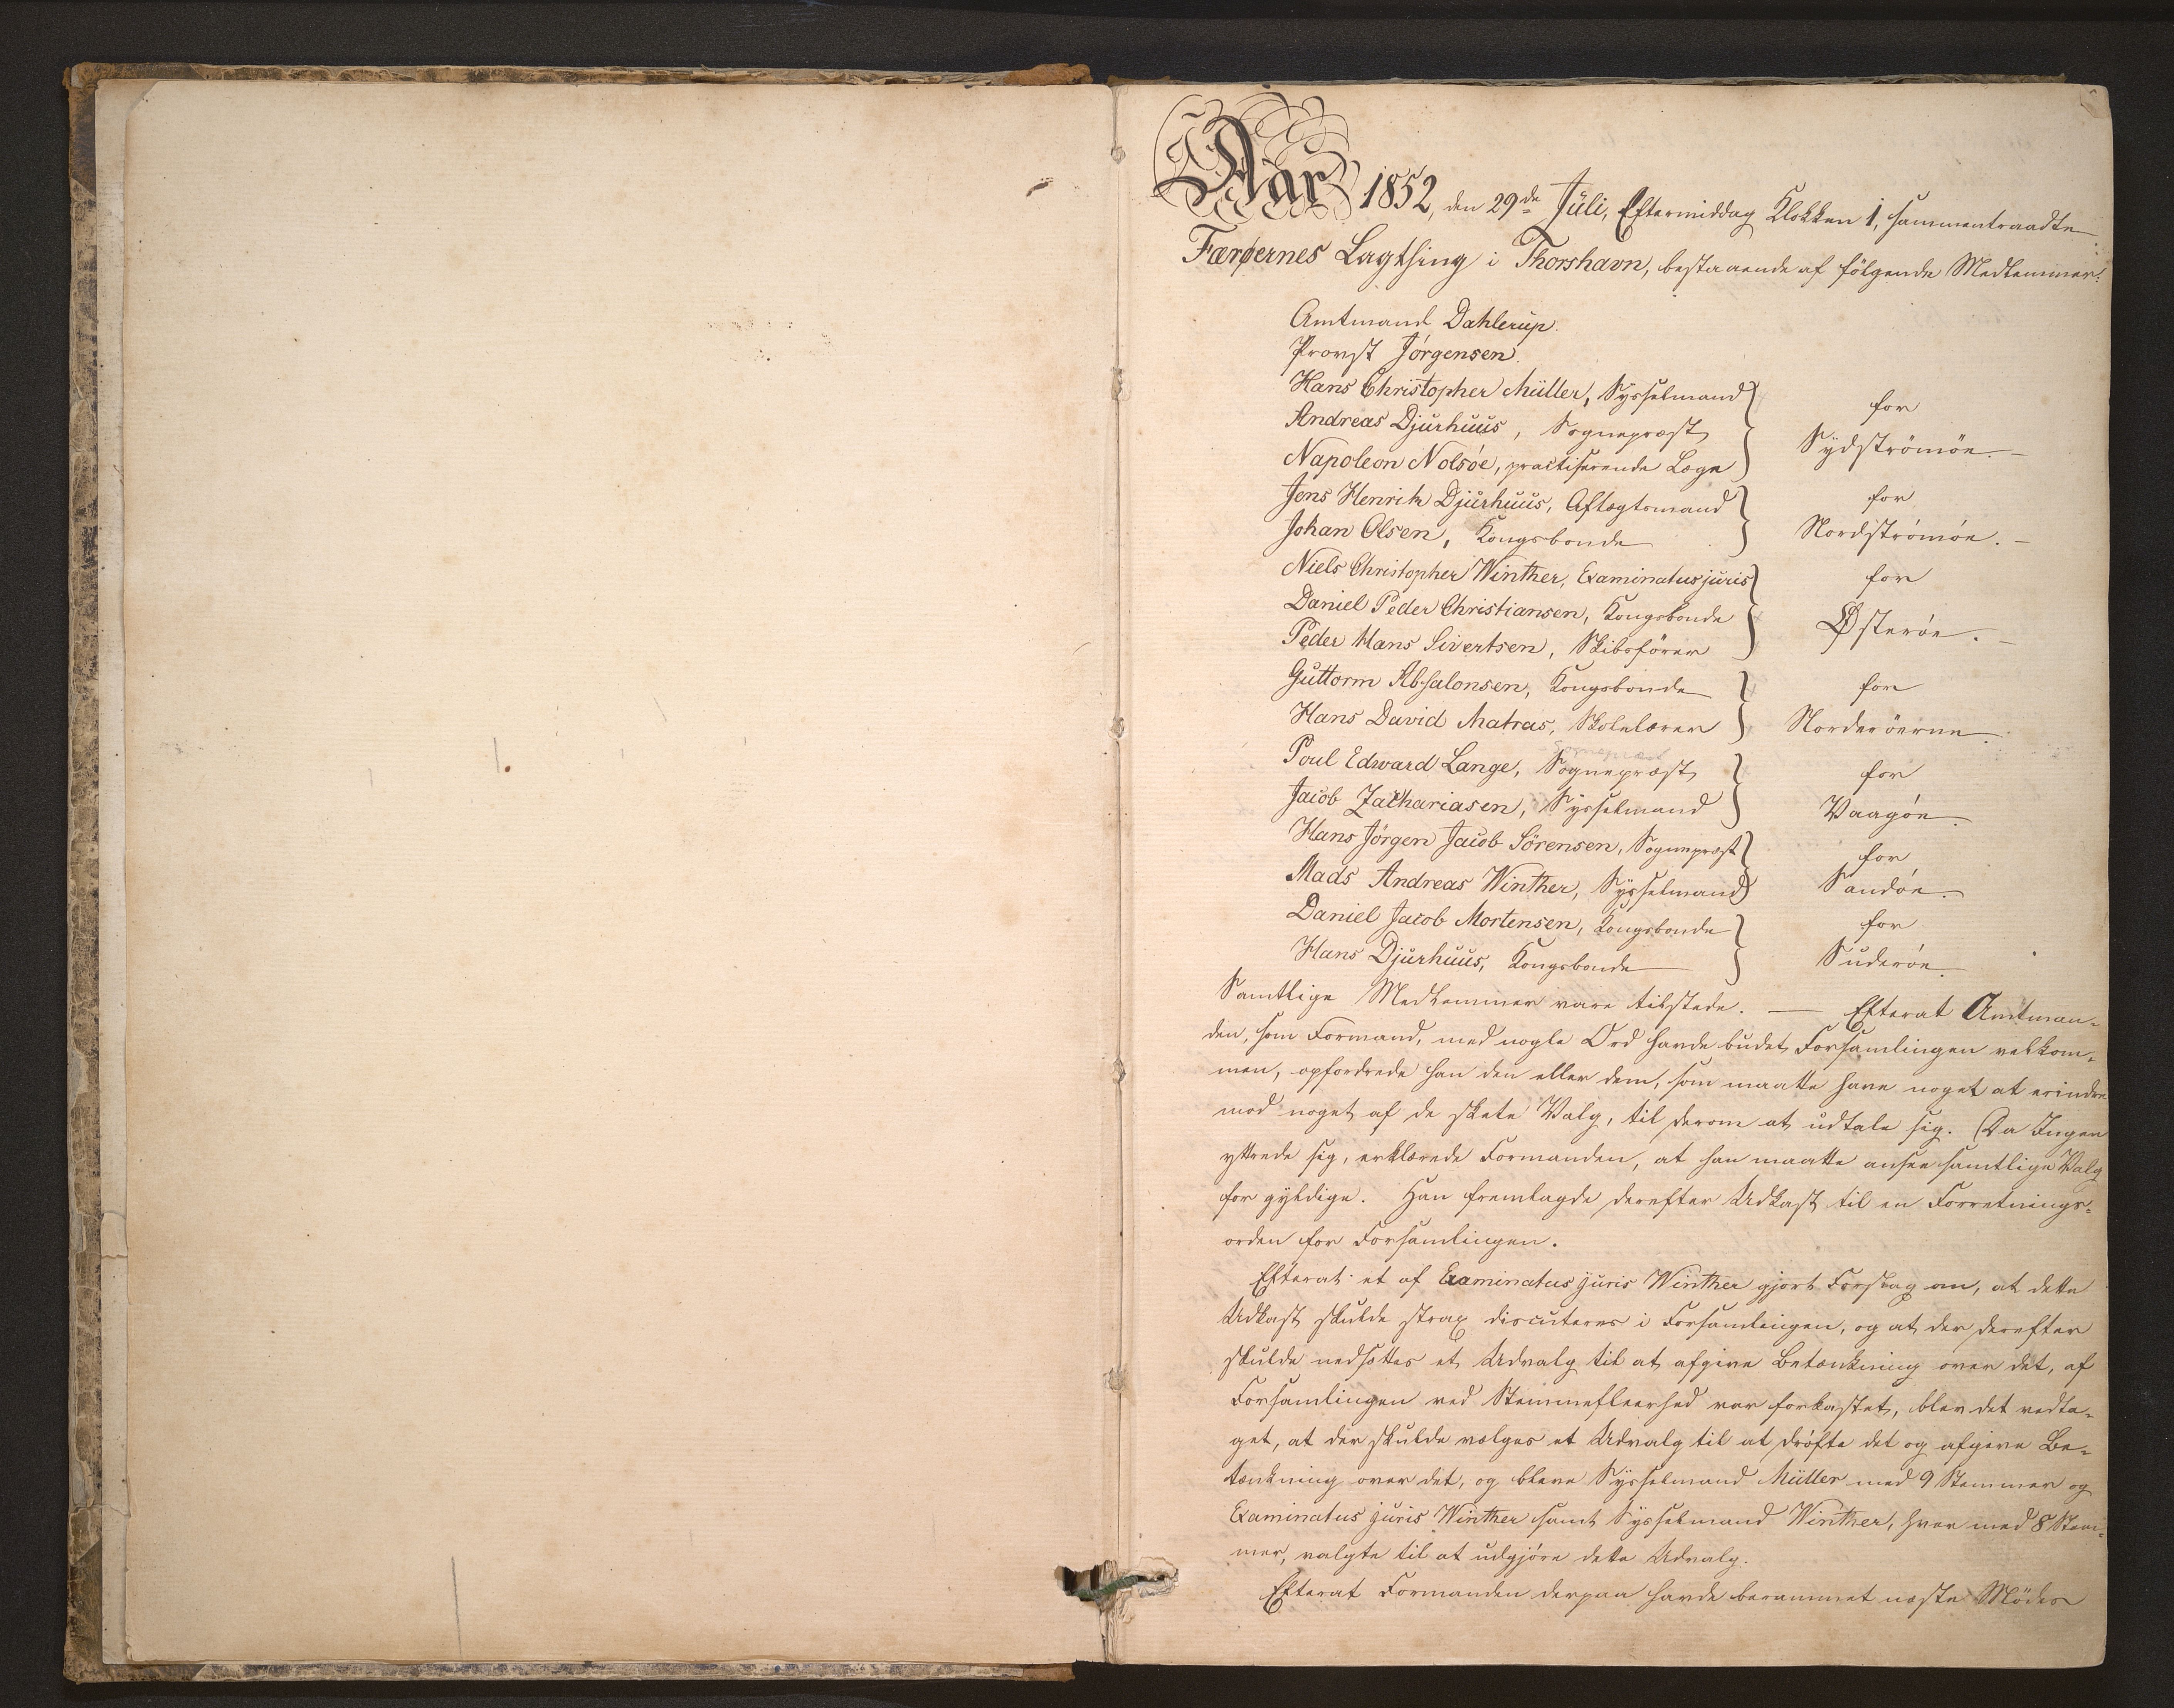 Aar 1852, den 29de Juli, Eftermiddag Klokken 1, sammentraadte
Færøernes Lagthing i Thorshavn, bestaaende af følgende Medlemmer:
Amtmand Dahlerup.
Provst Jørgensen.
Hans Christopher Müller, Sysselmand
Andreas Djurhuus, Sognepræst
Napoleon Nolsøe, practiserende Læge
for
Sydströmöe.
Jens Henrik Djurhuus, Aftægtsmand
Johan Olsen, Kongsbonde
for
Nordströmöe.
Niels Christopher Winther, Examinatus juris
Daniel Peder Christiansen, Kongsbonde
Peder Hans Sivertsen, Skibsfører
for
Østerøe.
Guttorm Absalonsen, Kongsbonde
Hans David Matras, Skolelærer
for
Norderöerne.
Poul Edward Lange, Sognepræst
Jacob Zachariasen, Sysselmand
for
Vaagøe.
Hans Jörgen Jacob Sörensen, Sognepræst
Mads Andreas Winther, Sysselmand
for
Sandøe.
Daniel Jacob Mortensen, Kongsbonde
Hans Djurhuus, Kongsbonde
for
Suderøe.
Samtlige Medlemmer vare tilstede. — Efterat Amtman-
den, som Formand, med nogle Ord havde budet Forsamlingen velkom-
men, opfordrede han den eller dem, som maatte have noget at erindre
mod noget af de skete Valg, til derom at udtale sig. Da Ingen
yttrede sig, erklærede Formanden, at han maatte ansee samtlige Valg
for gyldige. Han fremlagde derefter Udkast til en Forretnings-
orden for Forsamlingen.
Efterat et af Examinatus juris Winther gjort Forslag om, at dette
Udkast skulde strax discuteres i Forsamlingen, og at der derefter
skulde nedsættes et Udvalg til at afgive Betænkning over det, af
Forsamlingen ved Stemmefleerhed var forkastet, blev det vedta-
get, at der skulde vælges et Udvalg til at drøfte det og afgive Be-
tænkning over det, og bleve Sysselmand Müller med 9 Stemmer og
Examinatus juris Winther samt Sysselmand Winther, hver med 8 Stem-
mer, valgte til at udgjøre dette Udvalg.
Efterat Formanden derpaa havde berammet næste Mødes